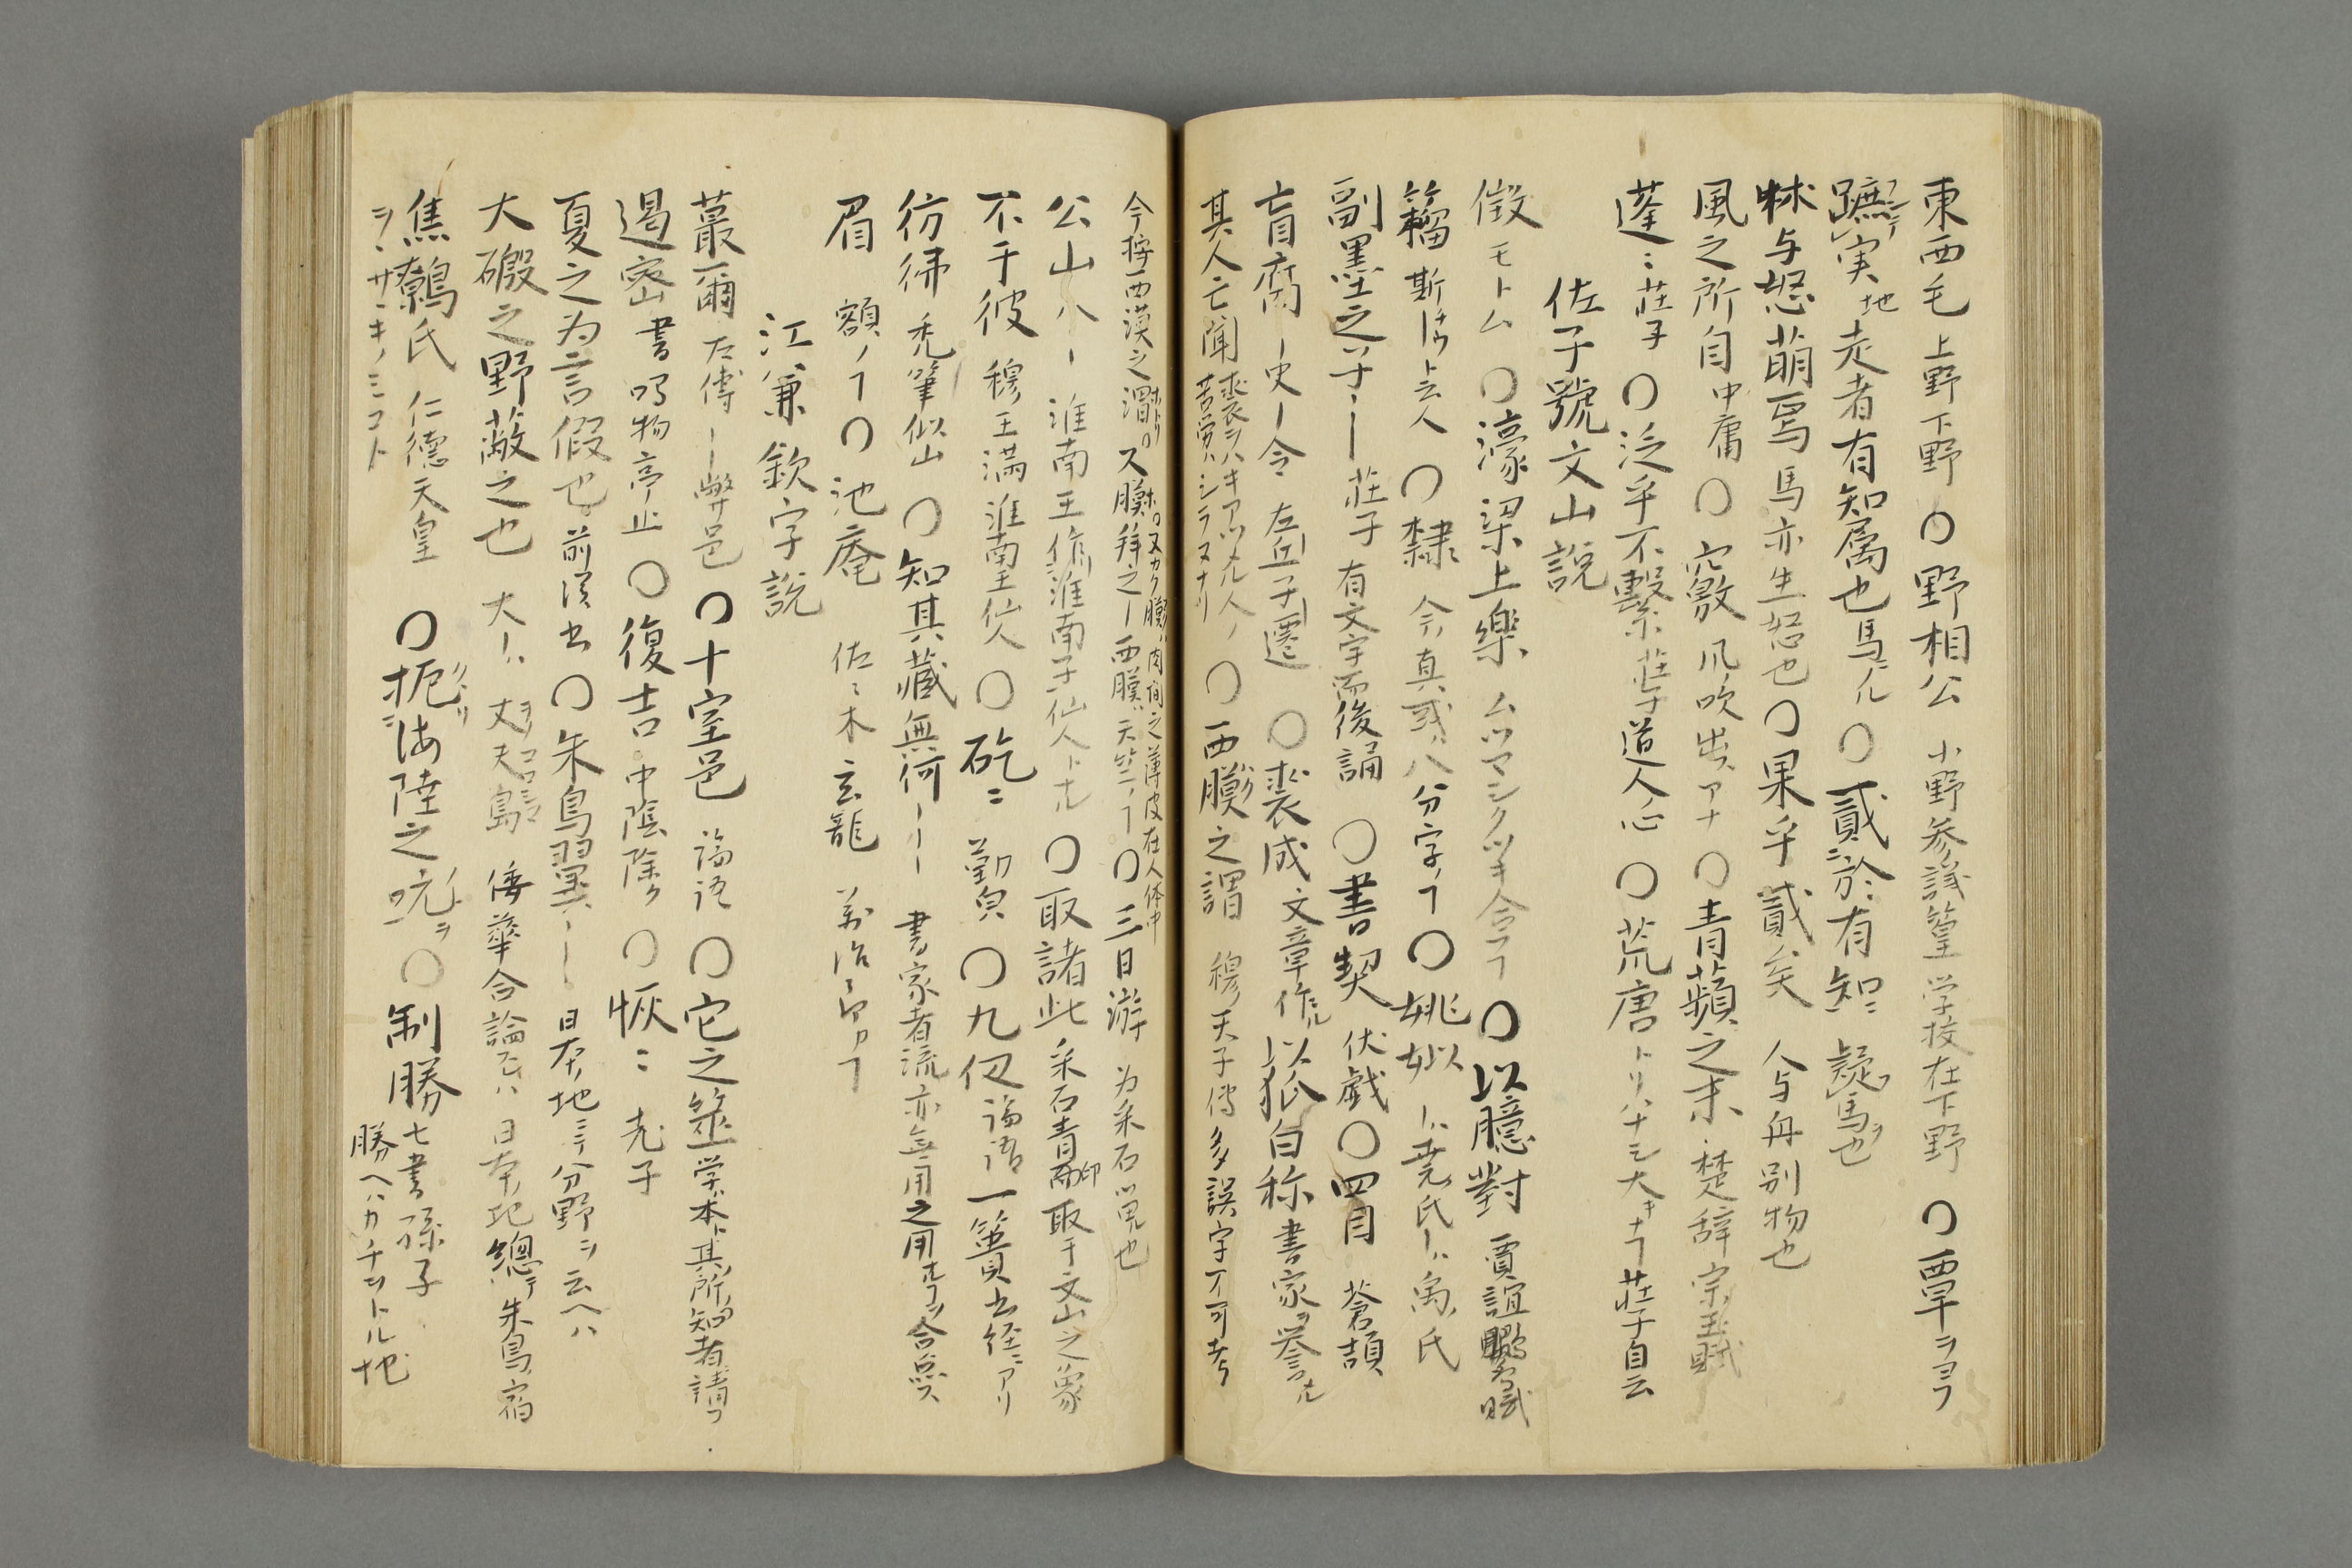 東西毛 上野下野 〇野相公 小野参議篁学校在下野 〇覃ヲヨフ
蹠実地走者有知属也馬ニル 〇貳於有知ニ 疑馬ヲ也
秣与怒萠焉 馬亦生怒也 〇果乎貳矣 人与舟別物也
風之所自 中庸 〇穴竅 風ノ吹出スアナ 〇青蘋之末 楚辞宗玉賦
蓬ニ 荘子 〇泛乎不繫 荘子道人心 〇荒唐 トリハナシ大キナヿ荘子自云
佐子號文山説
徴 モトム 〇濠梁上樂 ムツマシクツキ合フヿ 〇以臆對 賈誼鵬鳥賦
籀 斯ト云人 〇隸 今ノ真或ハ八分字ノヿ 〇姚姒 ーハ尭氏ーハ禹氏
副墨之子ー 荘子 有文字而後誦 〇書契 伏戯 〇四目 蒼頡
盲腐 ー史ー令 左丘子遷 〇裘成 文章作ル 以狐白称 書家ヲ誉ル
其人亡聞 裘ヲハキアツメル人ノ苦労ハシラヌナリ 〇西膜之謂 穆天子傳多誤字不可考
今按西漠之謂 又膜拜之ー西膜ハ天竺ノヿ 〇三日游 为采石㞮也
膜ハ肉間之薄皮在人体中
公山八ー 淮南王作淮南子仙人トナル 〇取諸此 采石青 印 取于文山之象
不于彼 穆王満淮南王仙人 〇矻ニ 勤㒵 〇九仞 論語 一簣 書経ニアリ
彷彿 禿筆似山 〇知其藏無何ーー 書家者流亦無用之用ナルヿヲ合点ス
眉 額ノヿ 〇池庵 佐々木玄龍 万治郎ノヿ
江兼欽字説
蕞爾 左傳ー弊邑 〇十室邑 論語 〇它之筮 学ノ本ト其所知者請フ
遏密 書 鳴物亭止 〇復吉 中陰除ク 〇恢ニ 老子
夏之为言假也 前漢书 〇朱鳥翼ー 日本ノ地ニテ分野ヲ云ヘハ
大磤之野敵之也 大ーハ 丈夫島 倭華合論ニハ日本ノ地總テ朱鳥ノ宿
焦鷯氏 仁徳天皇 〇扼海陸之吭ヲ 〇制勝 七書孫子
ヲヽサヽキノミコト 勝ヘハカチヲトル地